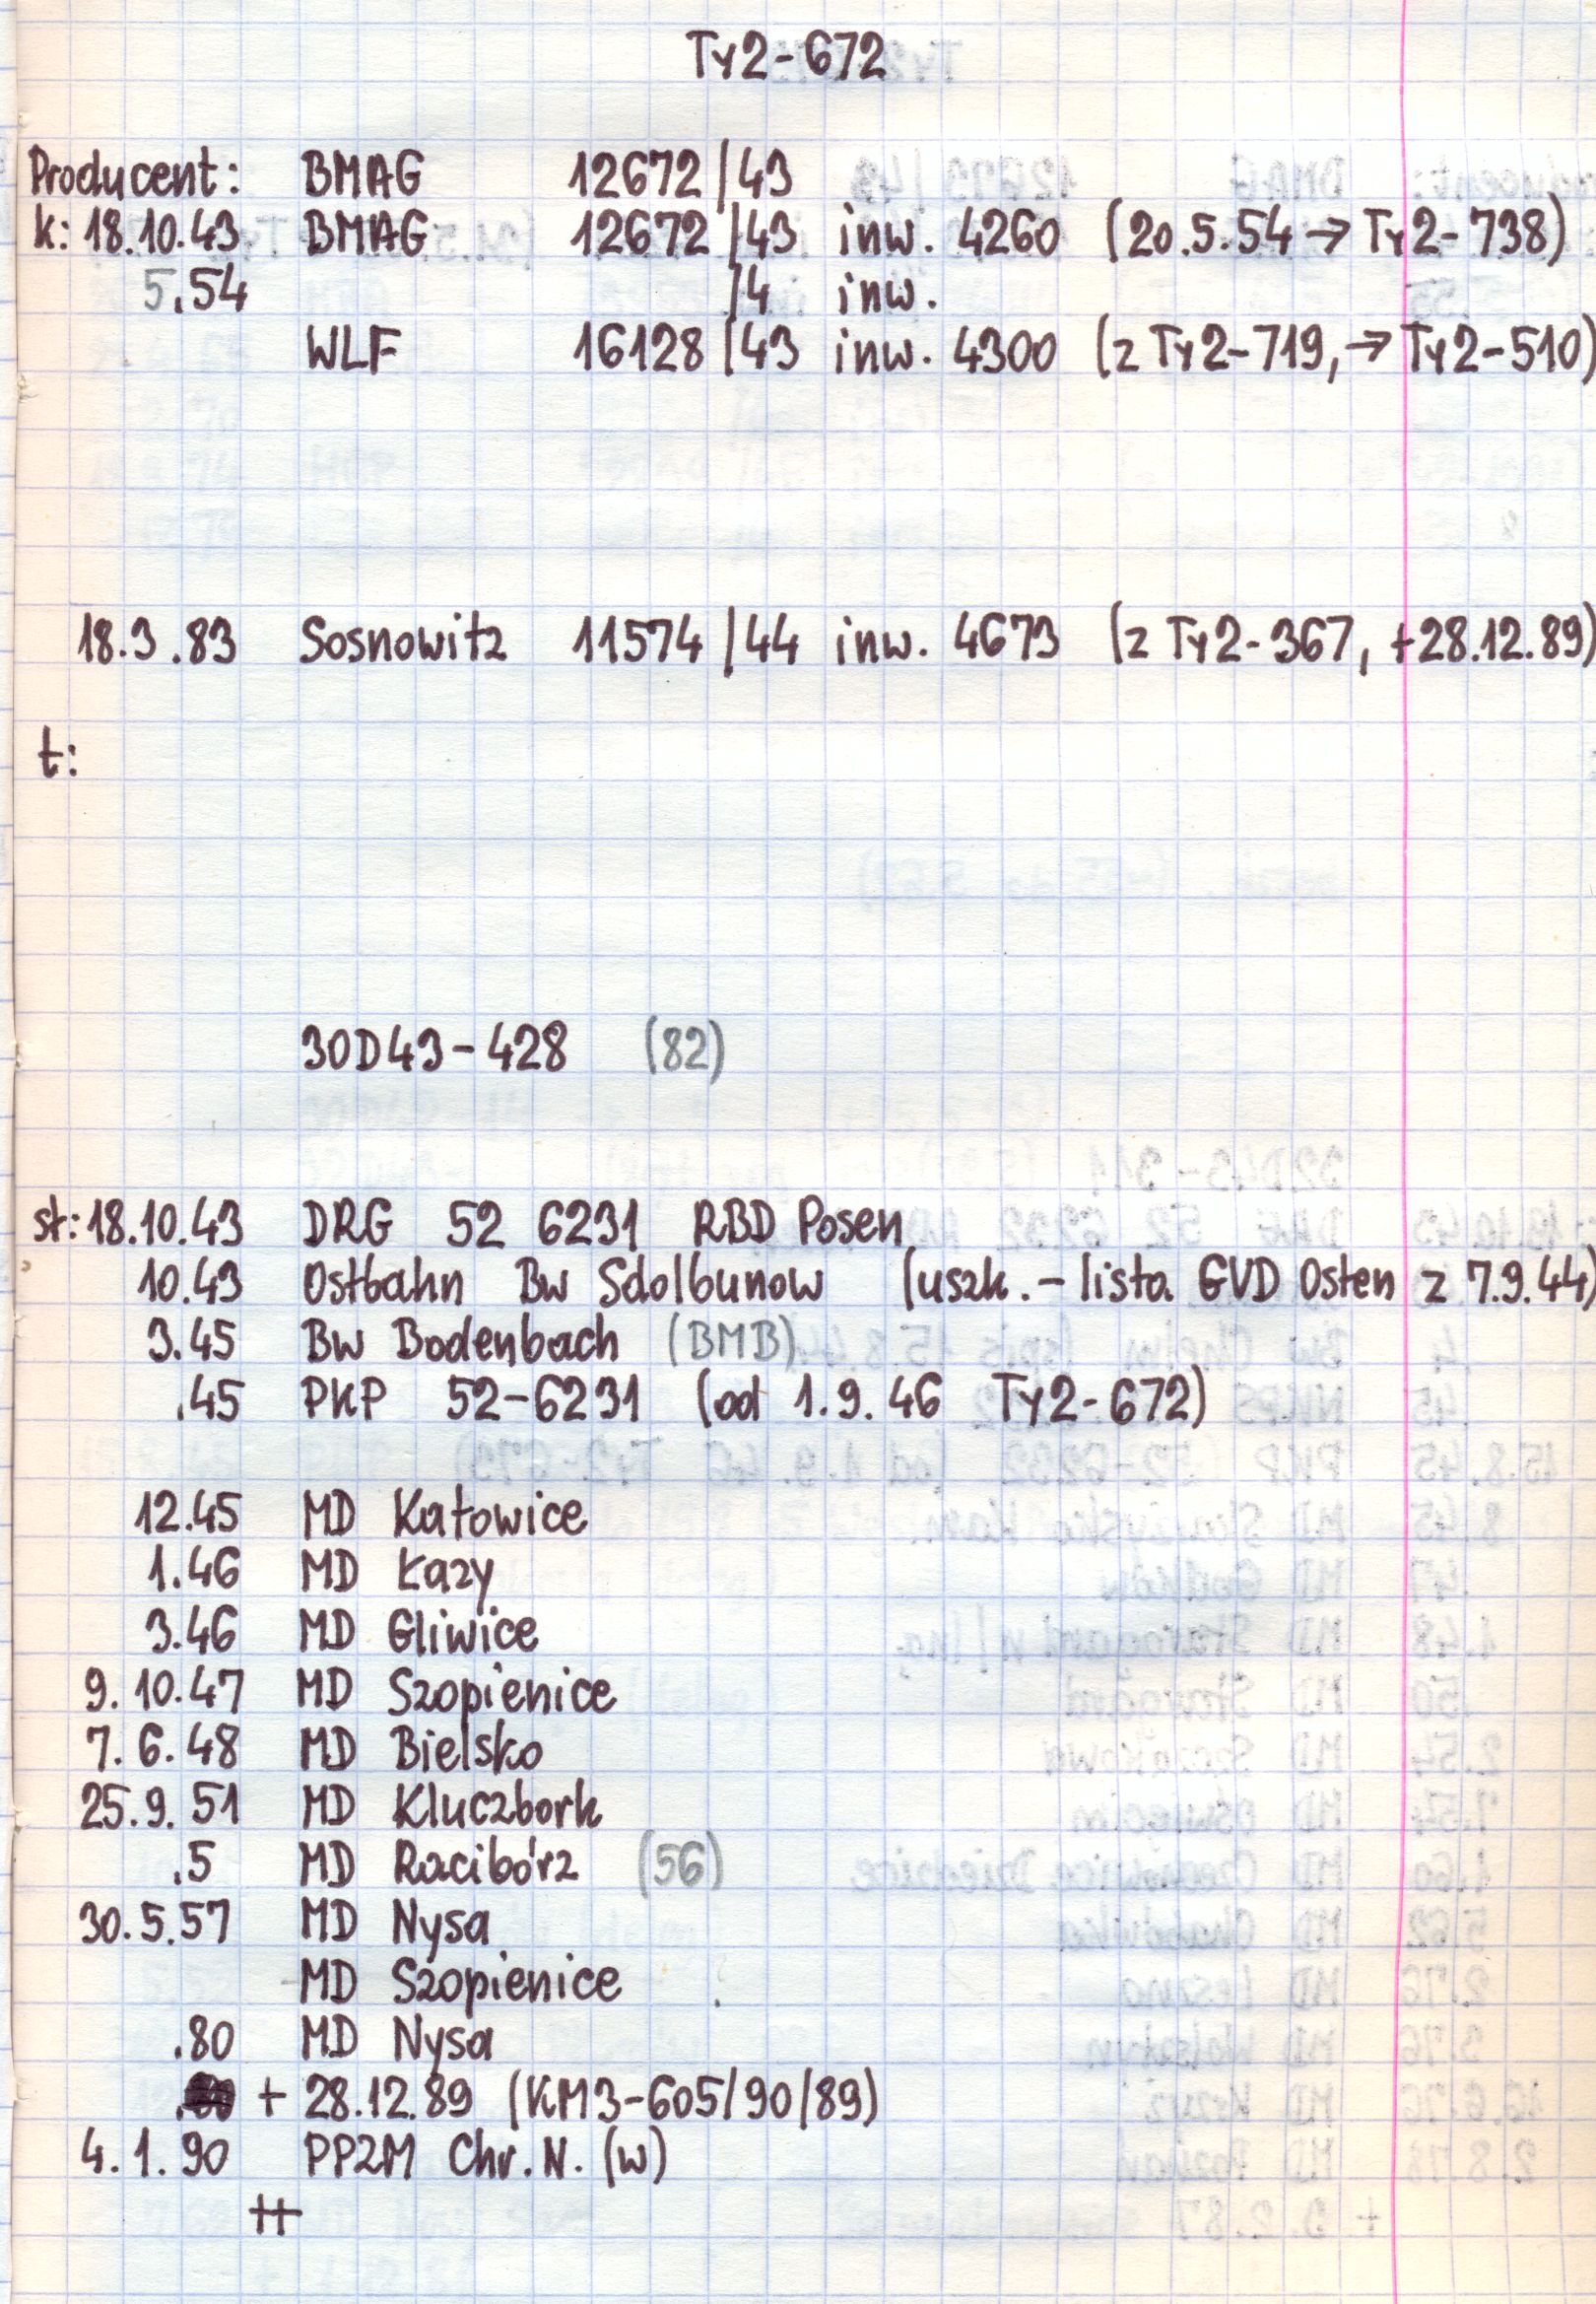 Ty2-672
Producent: BMAG 12672/43
k: 18.10.43 BMAG 12672/43 inw. 4260 (20.5.54 → Ty2-738)
5.54 /4 inw.
WLF 16128/43 inw. 4300 (z Ty2-719, → Ty2-510)
18.3.83 Sosnowitz 11574/44 inw. 4673 (z Ty2-367, +28.12.89)
t:
30D43-428 (82)
st: 18.10.43 DRG 52 6231 RBD Posen
10.43 Ostbahn Bw Sdolbunow (uszk. - lista GVD Osten z 7.9.44)
3.45 Bw Bodenbach (BMB)
.45 PKP 52-6231 (od 1.9.46 Ty2-672)
12.45 MD Katowice
1.46 MD Łazy
3.46 MD Gliwice
9.10.47 MD Szopienice
7.6.48 MD Bielsko
25.9.51 MD Kluczbork
.5 MD Racibórz (56)
30.5.57 MD Nysa
MD Szopienice
.80 MD Nysa
+ 28.12.89 (KM3-605/90/89)
4.1.90 PPZM Chr. N. (w)
++